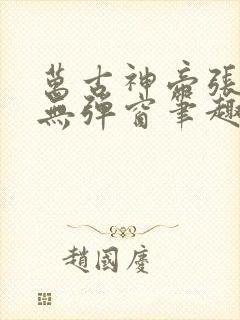 萬古神帝張
無彈窗筆趣
趙國慶